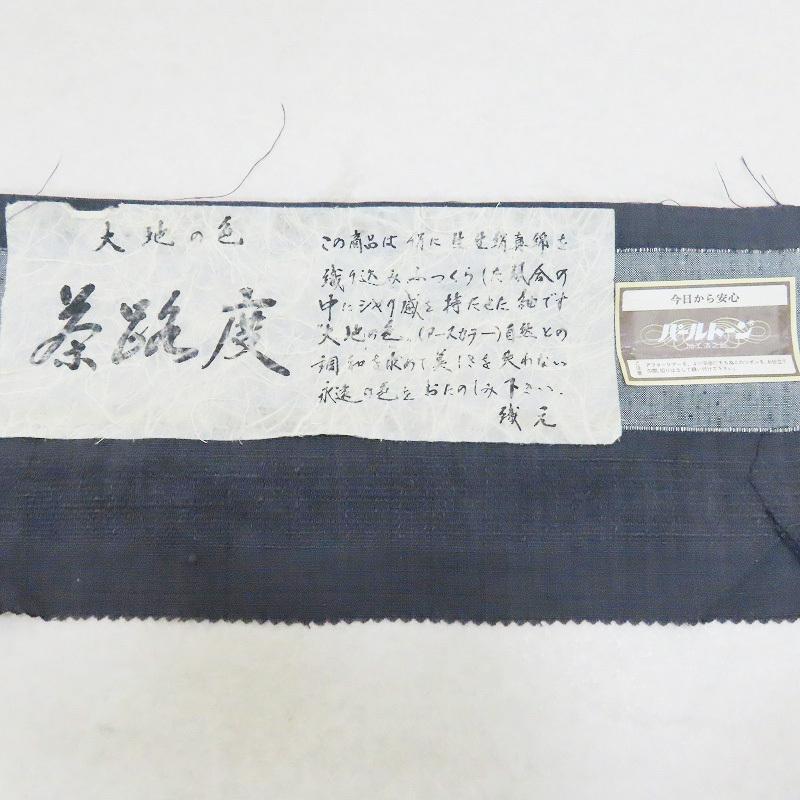 大地の色
茶路度
この商品は絹に生絹真綿を
織り込みふっくらした風合の
中にシャリ感を持たせた紬です
大地の色。(アースカラー)自然との
調和を求めて美しさを失わない
永遠の色をおたのしみ下さい.
織元
今日から安心
パールトーン